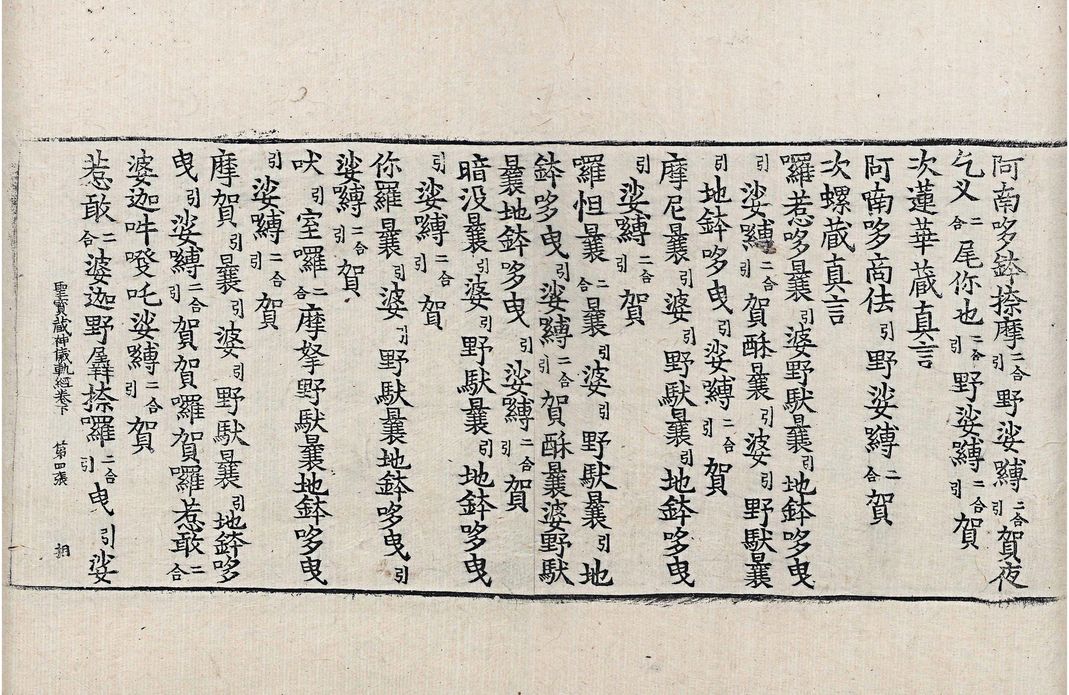 阿南哆鉢捺摩二合引野娑縛二合引賀夜
乞叉二合尾你也二合引野娑縛二合引賀
次蓮華藏真言
阿南哆商佉引野娑縛二合賀
次螺藏真言
囉惹哆曩引婆野馱曩引地鉢哆曳
引娑縛二合引賀酥曩引婆引野馱曩
引地鉢哆曳引娑縛二合引賀
摩尼曩引婆引野馱曩引地鉢哆曳
引娑縛二合引賀
囉怛曩二合曩引婆引野馱曩引地
鉢哆曳引娑縛二合引賀酥曩婆野馱
曩地鉢哆曳引娑縛二合引賀
暗没曩引婆引野馱曩引地鉢哆曳
引娑縛二合引賀
你羅曩引婆引野馱曩地鉢哆曳引
娑縛二合引賀
吠引室囉二合摩拏野馱曩地鉢哆曳
引娑縛二合引賀
摩賀引曩引婆引野馱曩引地鉢哆
曳引娑縛二合引賀賀囉賀囉惹敢二合
婆迦吽發吒娑縛二合引賀
惹敢二合婆迦野㬱捺囉二合引曳引娑
聖寶藏神儀軌經卷下 第四張 相